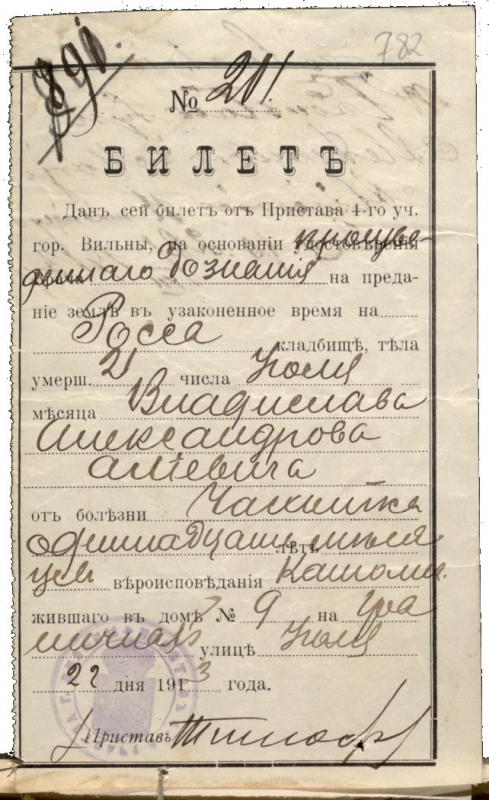 1890.
782
№ 201
БИЛЕТЪ
Данъ сей билетъ отъ Пристава 4-го уч.
гор. Вильны, на основаніи произве-
деннаго дознанія на преда-
ніе землѣ въ узаконенное время на
Росса
кладбищѣ, тѣла
умерш. 21 числа Іюля
мѣсяца Владислава
Александрова
отъ болѣзни Чахотка
одиннадцать лѣтъ мѣся
цев вѣроисповѣданія Католи.
жившаго въ домѣ № 9 на
улицѣ Іюля
22 дня 1913 года.
Приставъ